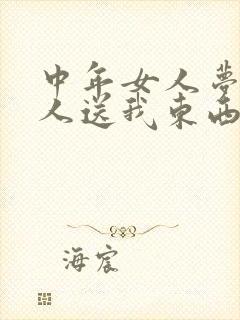 中年女人夢
人送我東西
海宸